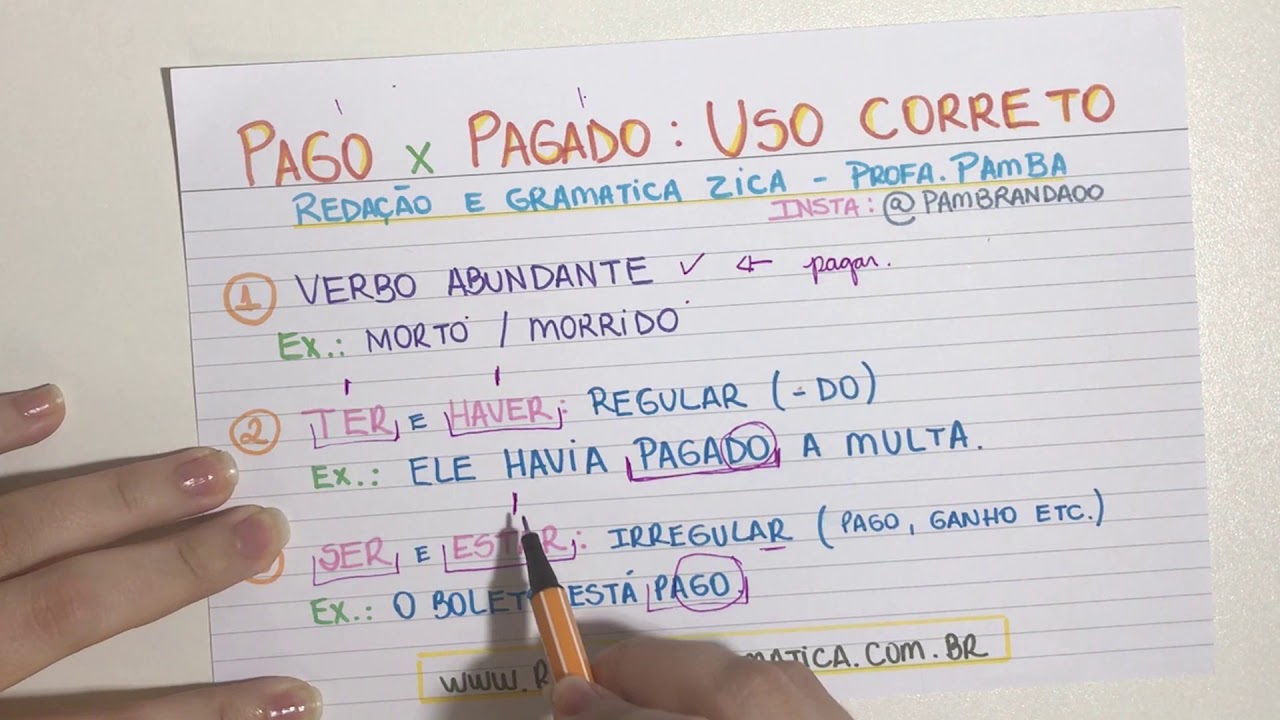 PAGO x PAGADO: USO CORRETO
REDAÇÃO E GRAMATICA ZICA - PROFA. PAMBA
INSTA: @PAMBRANDAOO
1 VERBO ABUNDANTE ✓ ← pagar.
EX.: MORTO / MORRIDO
2 TER E HAVER: REGULAR (-DO)
EX.: ELE HAVIA PAGADO A MULTA.
SER E ESTAR: IRREGULAR (PAGO, GANHO ETC.)
EX.: O BOLETO ESTÁ PAGO.